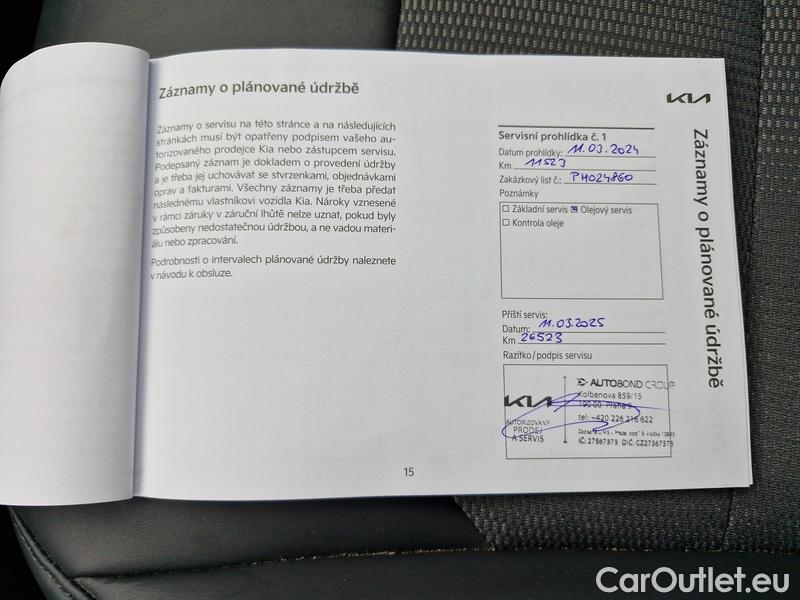 Záznamy o plánované údržbě
Záznamy o servisu na této stránce a na následujících
stránkách musí být opatřeny podpisem vašeho au-
torizovaného prodejce Kia nebo zástupcem servisu.
Podepsaný záznam je dokladem o provedení údržby
a je třeba jej uchovávat se stvrzenkami, objednávkami
oprav a fakturami. Všechny záznamy je třeba předat
následnému vlastníkovi vozidla Kia. Nároky vznesené
v rámci záruky v záruční lhůtě nelze uznat, pokud byly
způsobeny nedostatečnou údržbou, a ne vadou materi-
álu nebo zpracování.
Podrobnosti o intervalech plánované údržby naleznete
v návodu k obsluze.
KIA
Servisní prohlídka č. 1
Datum prohlídky: 11.03.2024
Km 11523
Zakázkový list č.: PH024860
Poznámky
Základní servis Olejový servis
Kontrola oleje
Příští servis:
Datum: 11.03.2025
Km 26523
Razítko/podpis servisu
KIA
AUTORIZOVANÝ
PRODEJ
A SERVIS
AUTOBOND GROUP
Kolbenova 859/15
190 00 Praha 9
tel: +420 226 216 622
IČ: 27367375 DIČ: CZ27367375
15
Záznamy o plánované údržbě
CarOutlet.eu